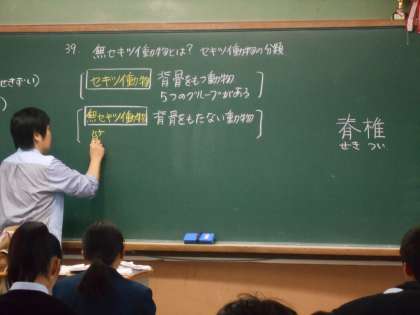 39. 無セキツイ動物とは? セキツイ動物の分類
せきずい)
セキツイ動物 背骨をもつ動物
5つのグループがある
無セキツイ動物 背骨をもたない動物
脊椎
せき つい